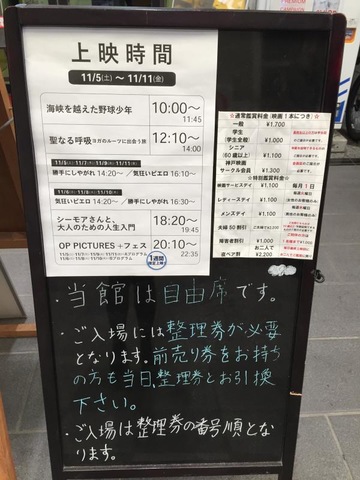 上映時間
11/5(土) ～ 11/11(金)
海峡を越えた野球少年
10:00～
11:45
聖なる呼吸 ヨガのルーツに出会う旅
12:10～
14:00
勝手にしやがれ 14:20～／気狂いピエロ 16:10～
気狂いピエロ 14:20～／勝手にしやがれ 16:30～
シーモアさんと、
大人のための人生入門
18:20～
19:45
OP PICTURES＋フェス
20:10～
22:35
1週間
限定上映!
☆通常鑑賞料金(映画1本につき)☆
一般 ¥1,700
学生
(学生全般) ¥1,000
シニア
(60歳以上) ¥1,100
神戸映画
サークル会員 ¥1,300
☆特別鑑賞料金☆
映画サービスデイ ¥1,100 毎月1日
レディースデイ ¥1,100
メンズデイ ¥1,100
夫婦50割引
障害者割引 ¥1,000
お二人で
店ペア割 ¥2,200
・当館は自由席です。
・ご入場には整理券が必要
となります。前売り券をお持ち
の方も当日、整理券とお引換
下さい。
・ご入場は整理券の番号順とな
ります。